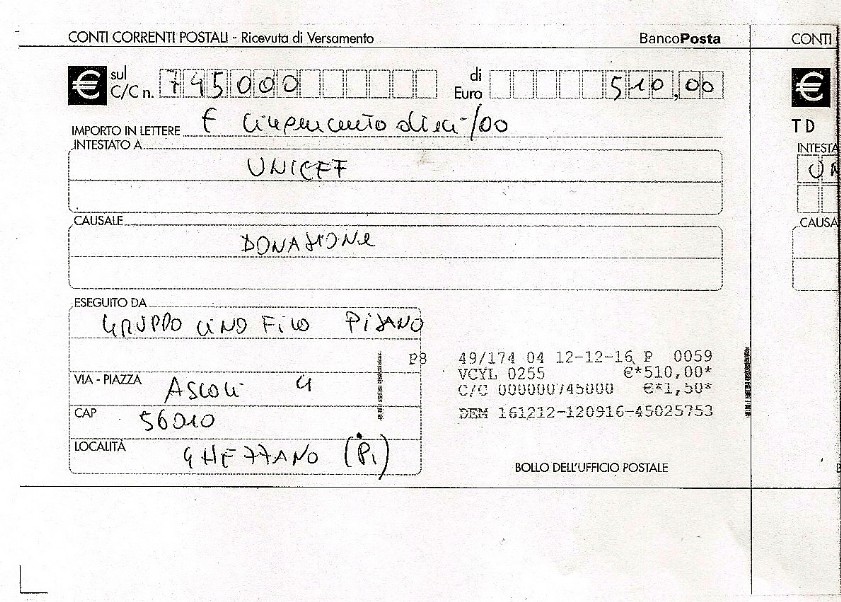 CONTI CORRENTI POSTALI - Ricevuta di Versamento BancoPosta
€ sul C/C n. 745000 di Euro 510,00
IMPORTO IN LETTERE € cinquecento dieci/00
INTESTATO A
UNICEF
CAUSALE
DONAZIONE
ESEGUITO DA
GRUPPO CINO FILO PISANO
P8 49/174 04 12-12-16 P 0059
VCYL 0255 €*510,00*
VIA - PIAZZA ASCOLI 4
C/C 000000745000 €*1,50*
CAP 56010
DEM 161212-120916-45025753
LOCALITÀ GHEZZANO (PI)
BOLLO DELL'UFFICIO POSTALE
CONTI
€
TD
INTESTA
UN
CAUSA